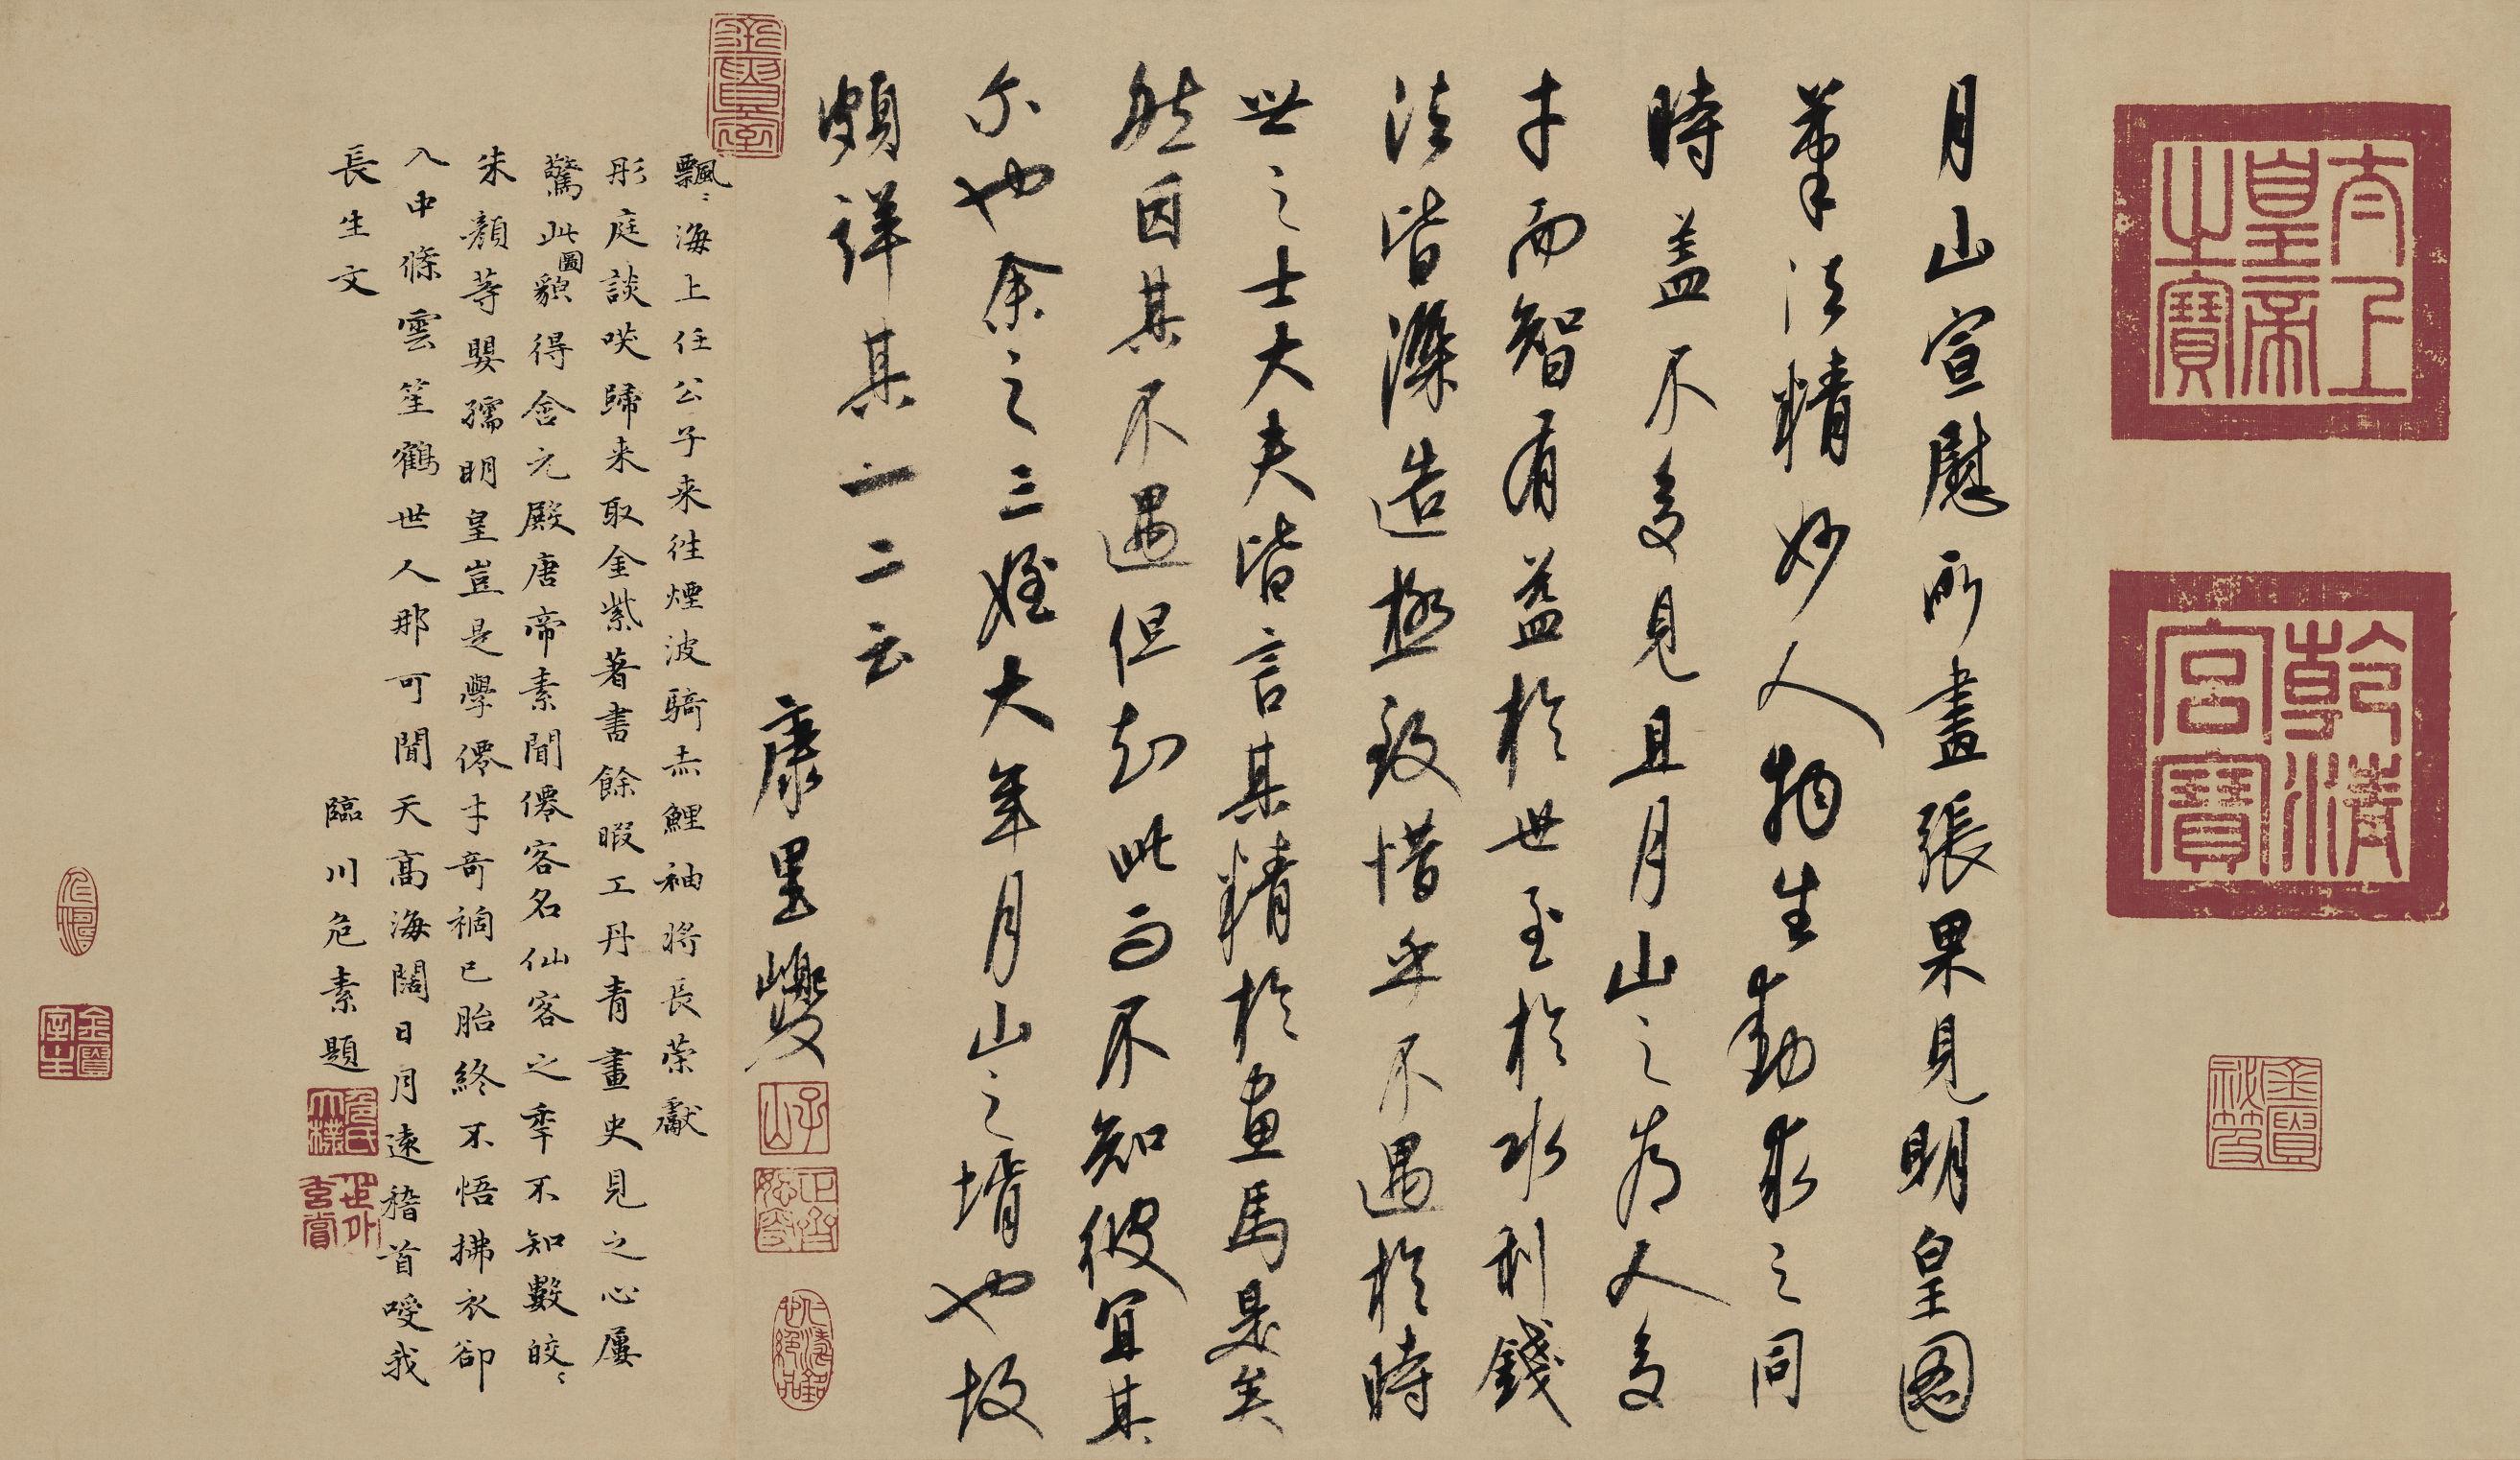 太上皇帝之寶
乾清宮寶
月山宣慰所畫張果見明皇圖
筆法精妙人物生動求之同
時盖不多見且月山之為人多
才而智有益於世至於水利錢
法皆深造極致惜乎不遇於時
世之士大夫皆言其精於畫馬是矣
然因其不遇但知此而不知彼宜其
尔也余之三姪大年月山之壻也故
頗詳其一二云
康里巎
子山
飄〻海上任公子来往煙波騎赤鯉袖將長策獻
彤庭談笑歸来取金紫著書餘暇工丹青畫史見之心屢
驚此圖貌得含元殿唐帝素聞僊客名仙客之季不知數皎〻
朱顏等嬰孺明皇豈是學僊才奇禍已胎終不悟拂衣卻
入中條雲笙鶴世人那可聞天高海闊日月遠稽首受我
長生文
臨川危素題